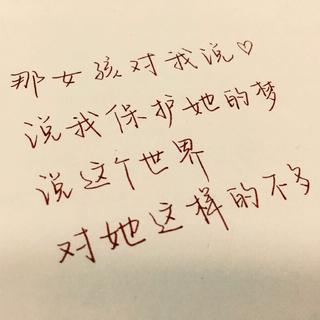 那女孩对我说♡
说我保护她的梦
说这个世界
对她这样的不多